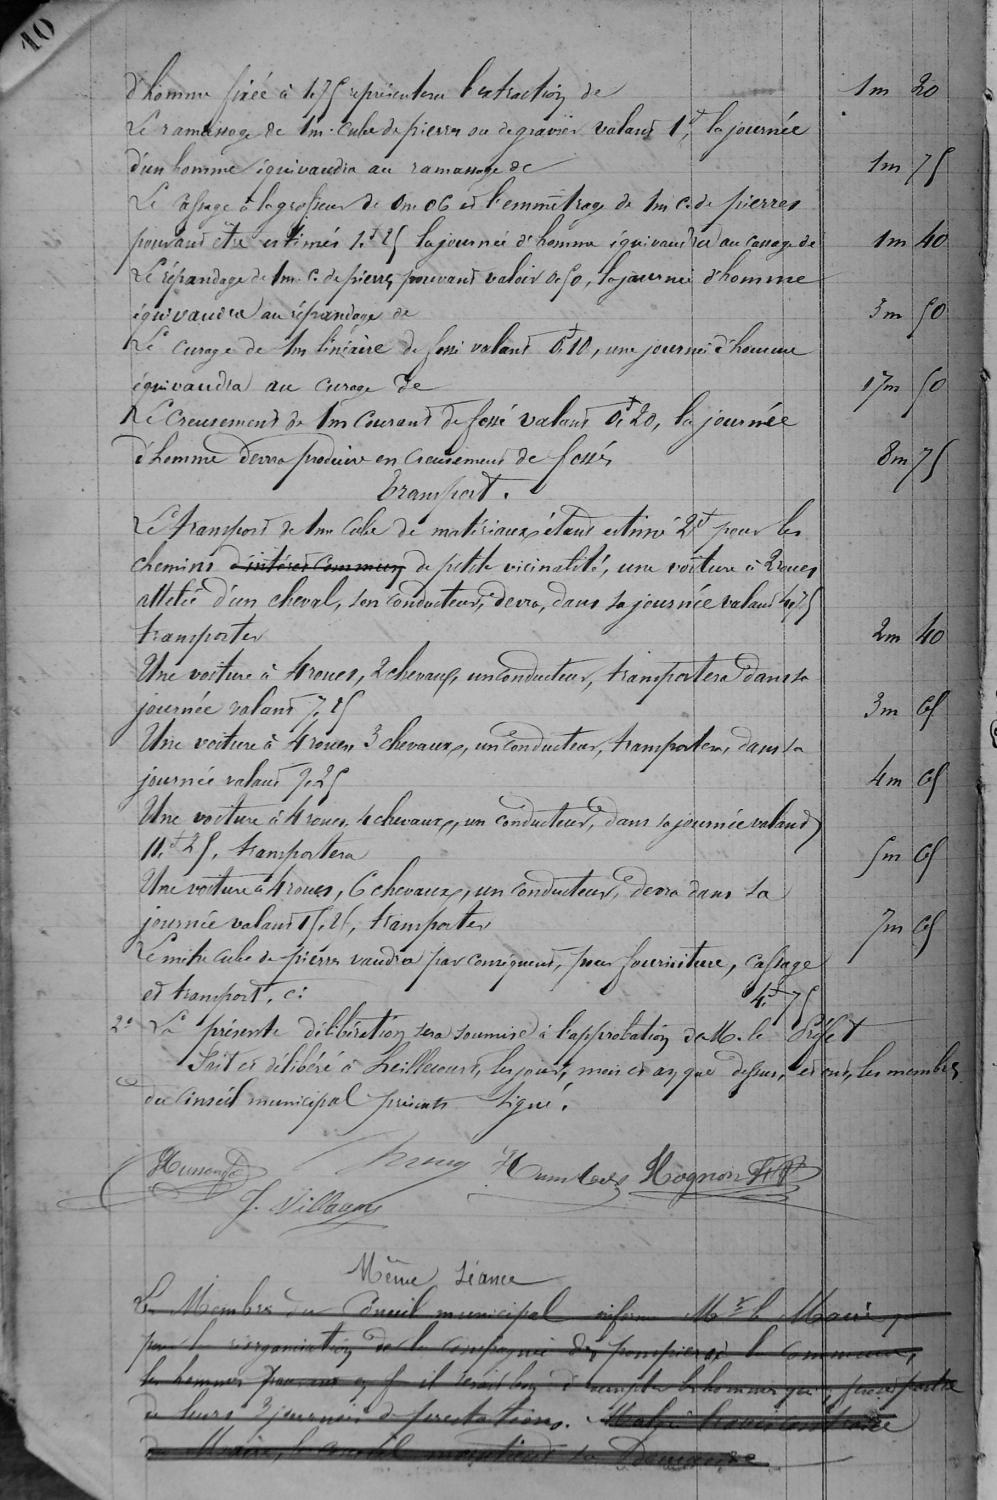 10
d'homme fixée à 1f,75 représentera l'extraction de 1m 20
Le ramassage de 1m. cube de pierres ou de gravier valant 1f, la journée
d'un homme équivaudra au ramassage de 1m 75
Le cassage à la grosseur de 0m06 et l'emmétrage de 1m c. de pierres
pouvant être estimés 1.f25 la journée d'homme équivaudra au cassage de 1m 40
Le répandage de 1m. c. de pierres pouvant valoir 0,50, la journée d'homme
équivaudra au répandage de 3m 50
Le curage de 1m linéaire de fossé valant 0f10, une journée d'homme
équivaudra au curage de 17m 50
Le creusement de 1m courant de fossé valant 0f20, la journée
d'homme devra produire en creusement de fossés 8m 75
Transport.
Le transport de 1m cube de matériaux étant estimé 2f pour les
chemins d'intérêt commun de petite vicinalité, une voiture à 2 roues
attelée d'un cheval, son conducteur, devra, dans sa journée valant 4,75
transporter 2m 40
Une voiture à 4 roues, 2 chevaux, un conducteur, transportera dans sa
journée valant 7,25 3m 65
Une voiture à 4 roues, 3 chevaux, un conducteur, transportera, dans sa
journée valant 9,25 4m 65
Une voiture à 4 roues, 4 chevaux, un conducteur, dans sa journée valant
11.f25, transportera 5m 65
Une voiture à 4 roues, 6 chevaux, un conducteur, devra dans sa
journée valant 15,25, transporter 7m 65
Le mètre cube de pierres vaudra par conséquent, pour fourniture, cassage
et transport, ci: 4.f75
2° La présente délibération sera soumise à l'approbation de M. le Préfet
Fait et délibéré à Leillecourt, les jour, mois et an que dessus, et ont, les membres
du Conseil municipal présents signé.
J. Villaqny
Hognon
Même séance
Les Membres du Conseil municipal Mr le Maire
pour la réorganisation de la compagnie des pompiers la commune,
les hommes
de leurs 3 journées de prestations. Malgré l'avis contraire
du Maire, le conseil maintient sa Demande